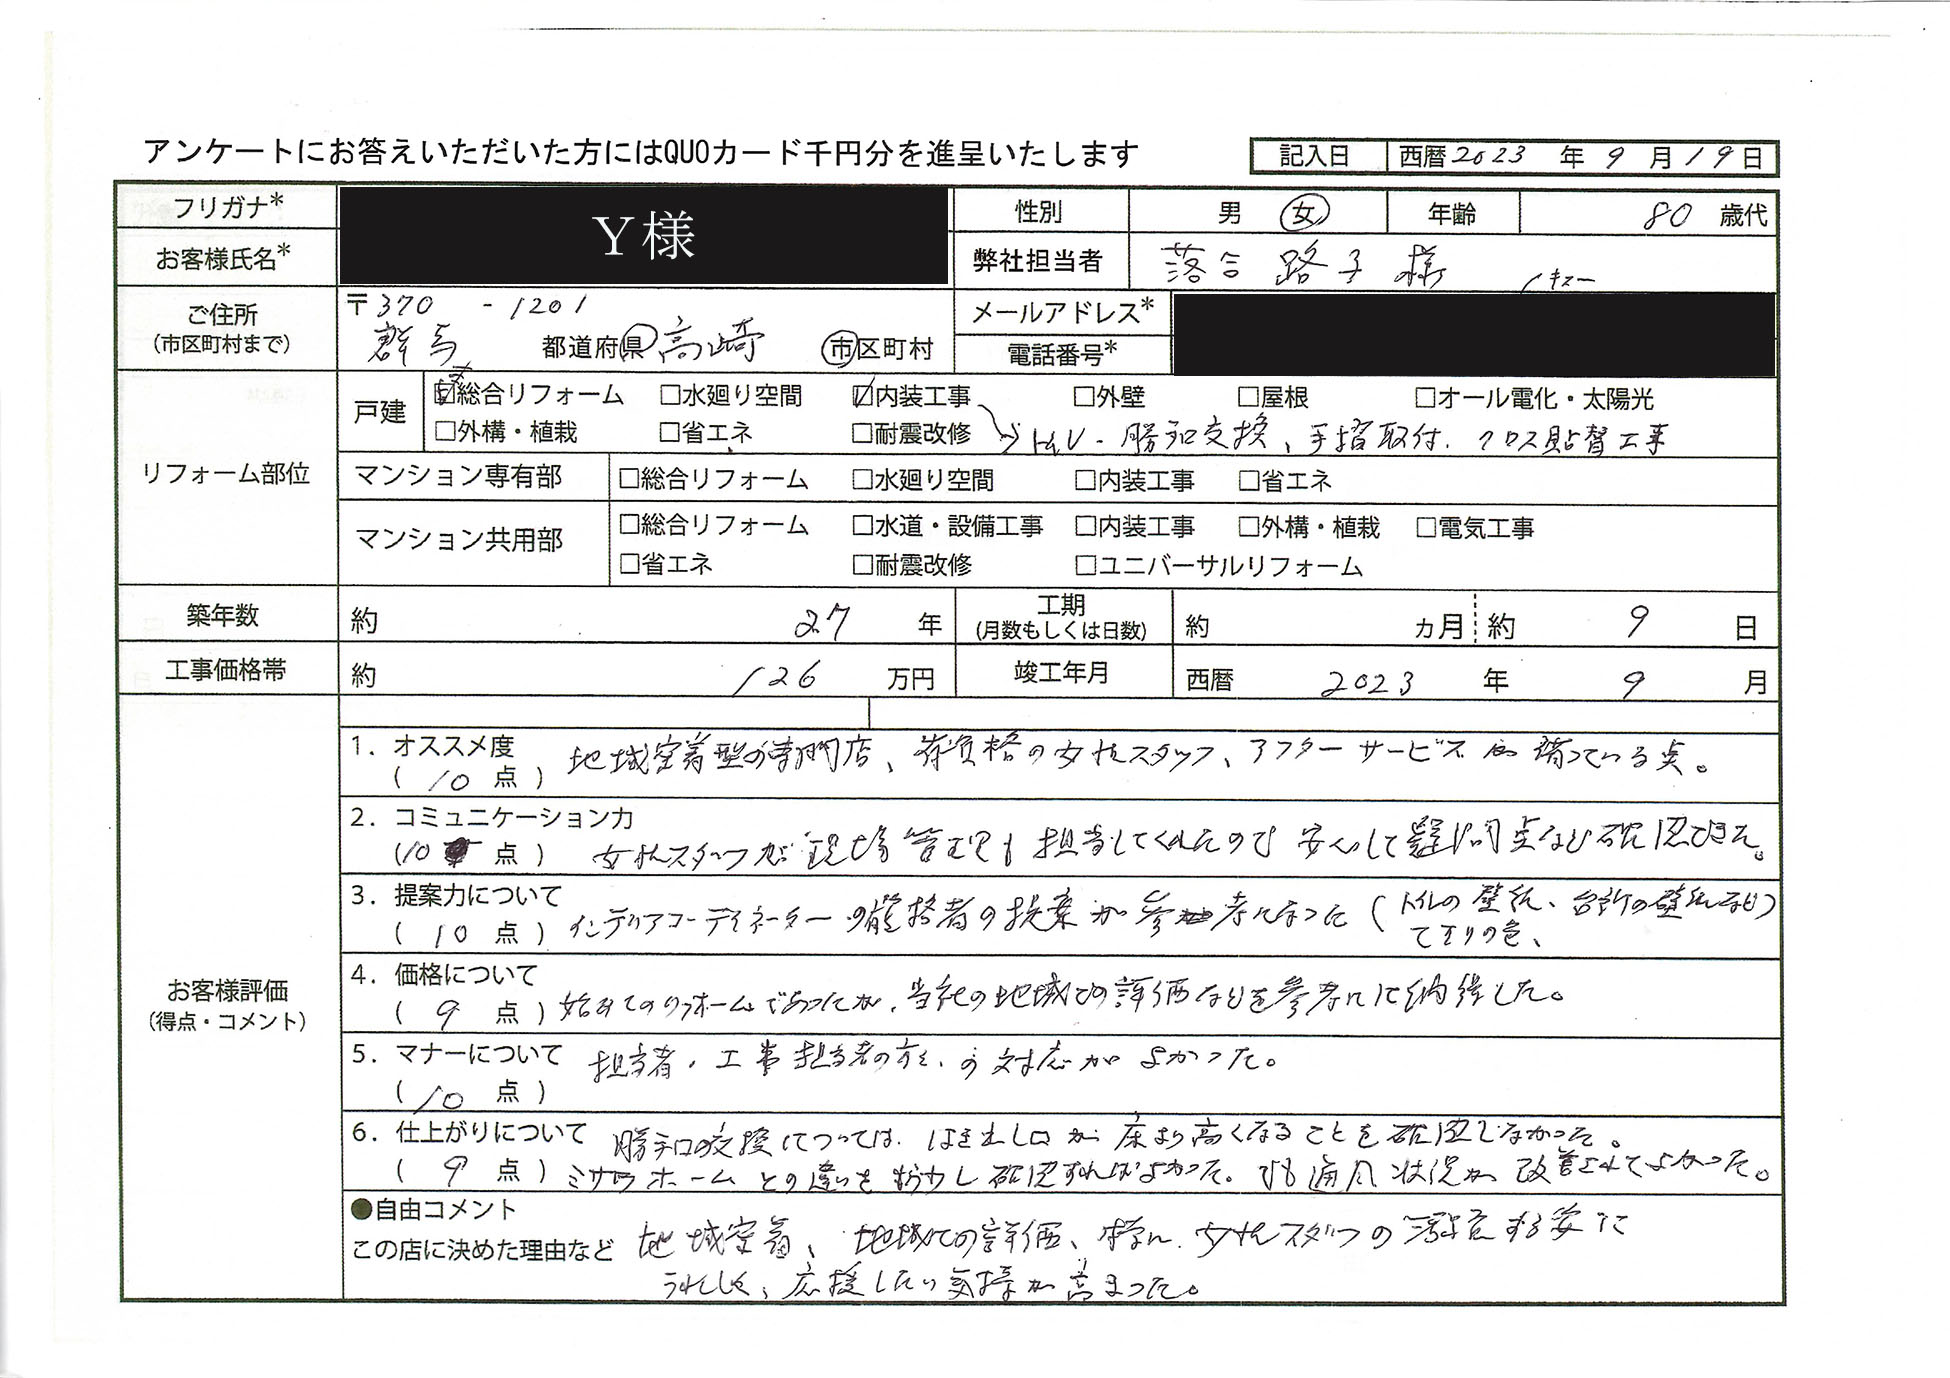 アンケートにお答えいただいた方にはQUOカード千円分を進呈いたします
記入日 西暦 2023 年 9 月 19 日
フリガナ* Y様 性別 男 女 年齢 80 歳代
お客様氏名* 弊社担当者 落合 路子 様
ご住所 (市区町村まで) 〒370-1201 メールアドレス*
群馬 都道府県 高崎 市区町村 電話番号*
リフォーム部位
戸建 ☑総合リフォーム □水廻り空間 ☑内装工事 □外壁 □屋根 □オール電化・太陽光
□外構・植栽 □省エネ □耐震改修 トイレ・勝手口交換、手摺取付、クロス貼替工事
マンション専有部 □総合リフォーム □水廻り空間 □内装工事 □省エネ
マンション共用部 □総合リフォーム □水道・設備工事 □内装工事 □外構・植栽 □電気工事
□省エネ □耐震改修 □ユニバーサルリフォーム
築年数 約 27 年 工期 (月数もしくは日数) 約 カ月 約 9 日
工事価格帯 約 126 万円 竣工年月 西暦 2023 年 9 月
お客様評価
(得点・コメント)
1. オススメ度 (10 点) 地域定着型の専門店、有資格の女性スタッフ、アフターサービスの踊っている点。
2. コミュニケーション力 (10 点) 女性スタッフが現場管理も担当してくれたので安心して疑問点など確認できた。
3. 提案力について (10 点) インテリアコーディネーターの資格者の提案が参考になった (トイレの壁紙、台所の壁紙など)
てすりの色、
4. 価格について (9 点) 始めてのリフォームであったが、当社の地域での評価などを参考にし納得した。
5. マナーについて (10 点) 担当者・工事担当者の方々の対応がよかった。
6. 仕上がりについて (9 点) 勝手口の交換については、はき出し口が床より高くなることを確認しなかった。
ミサワホームとの違いをもう少し確認すればよかった。でも通風状況が改善されてよかった。
●自由コメント
この店に決めた理由など 地域定着、地域での評価、特に、女性スタッフの活躍する姿に
うれしく、応援したい気持が高まった。